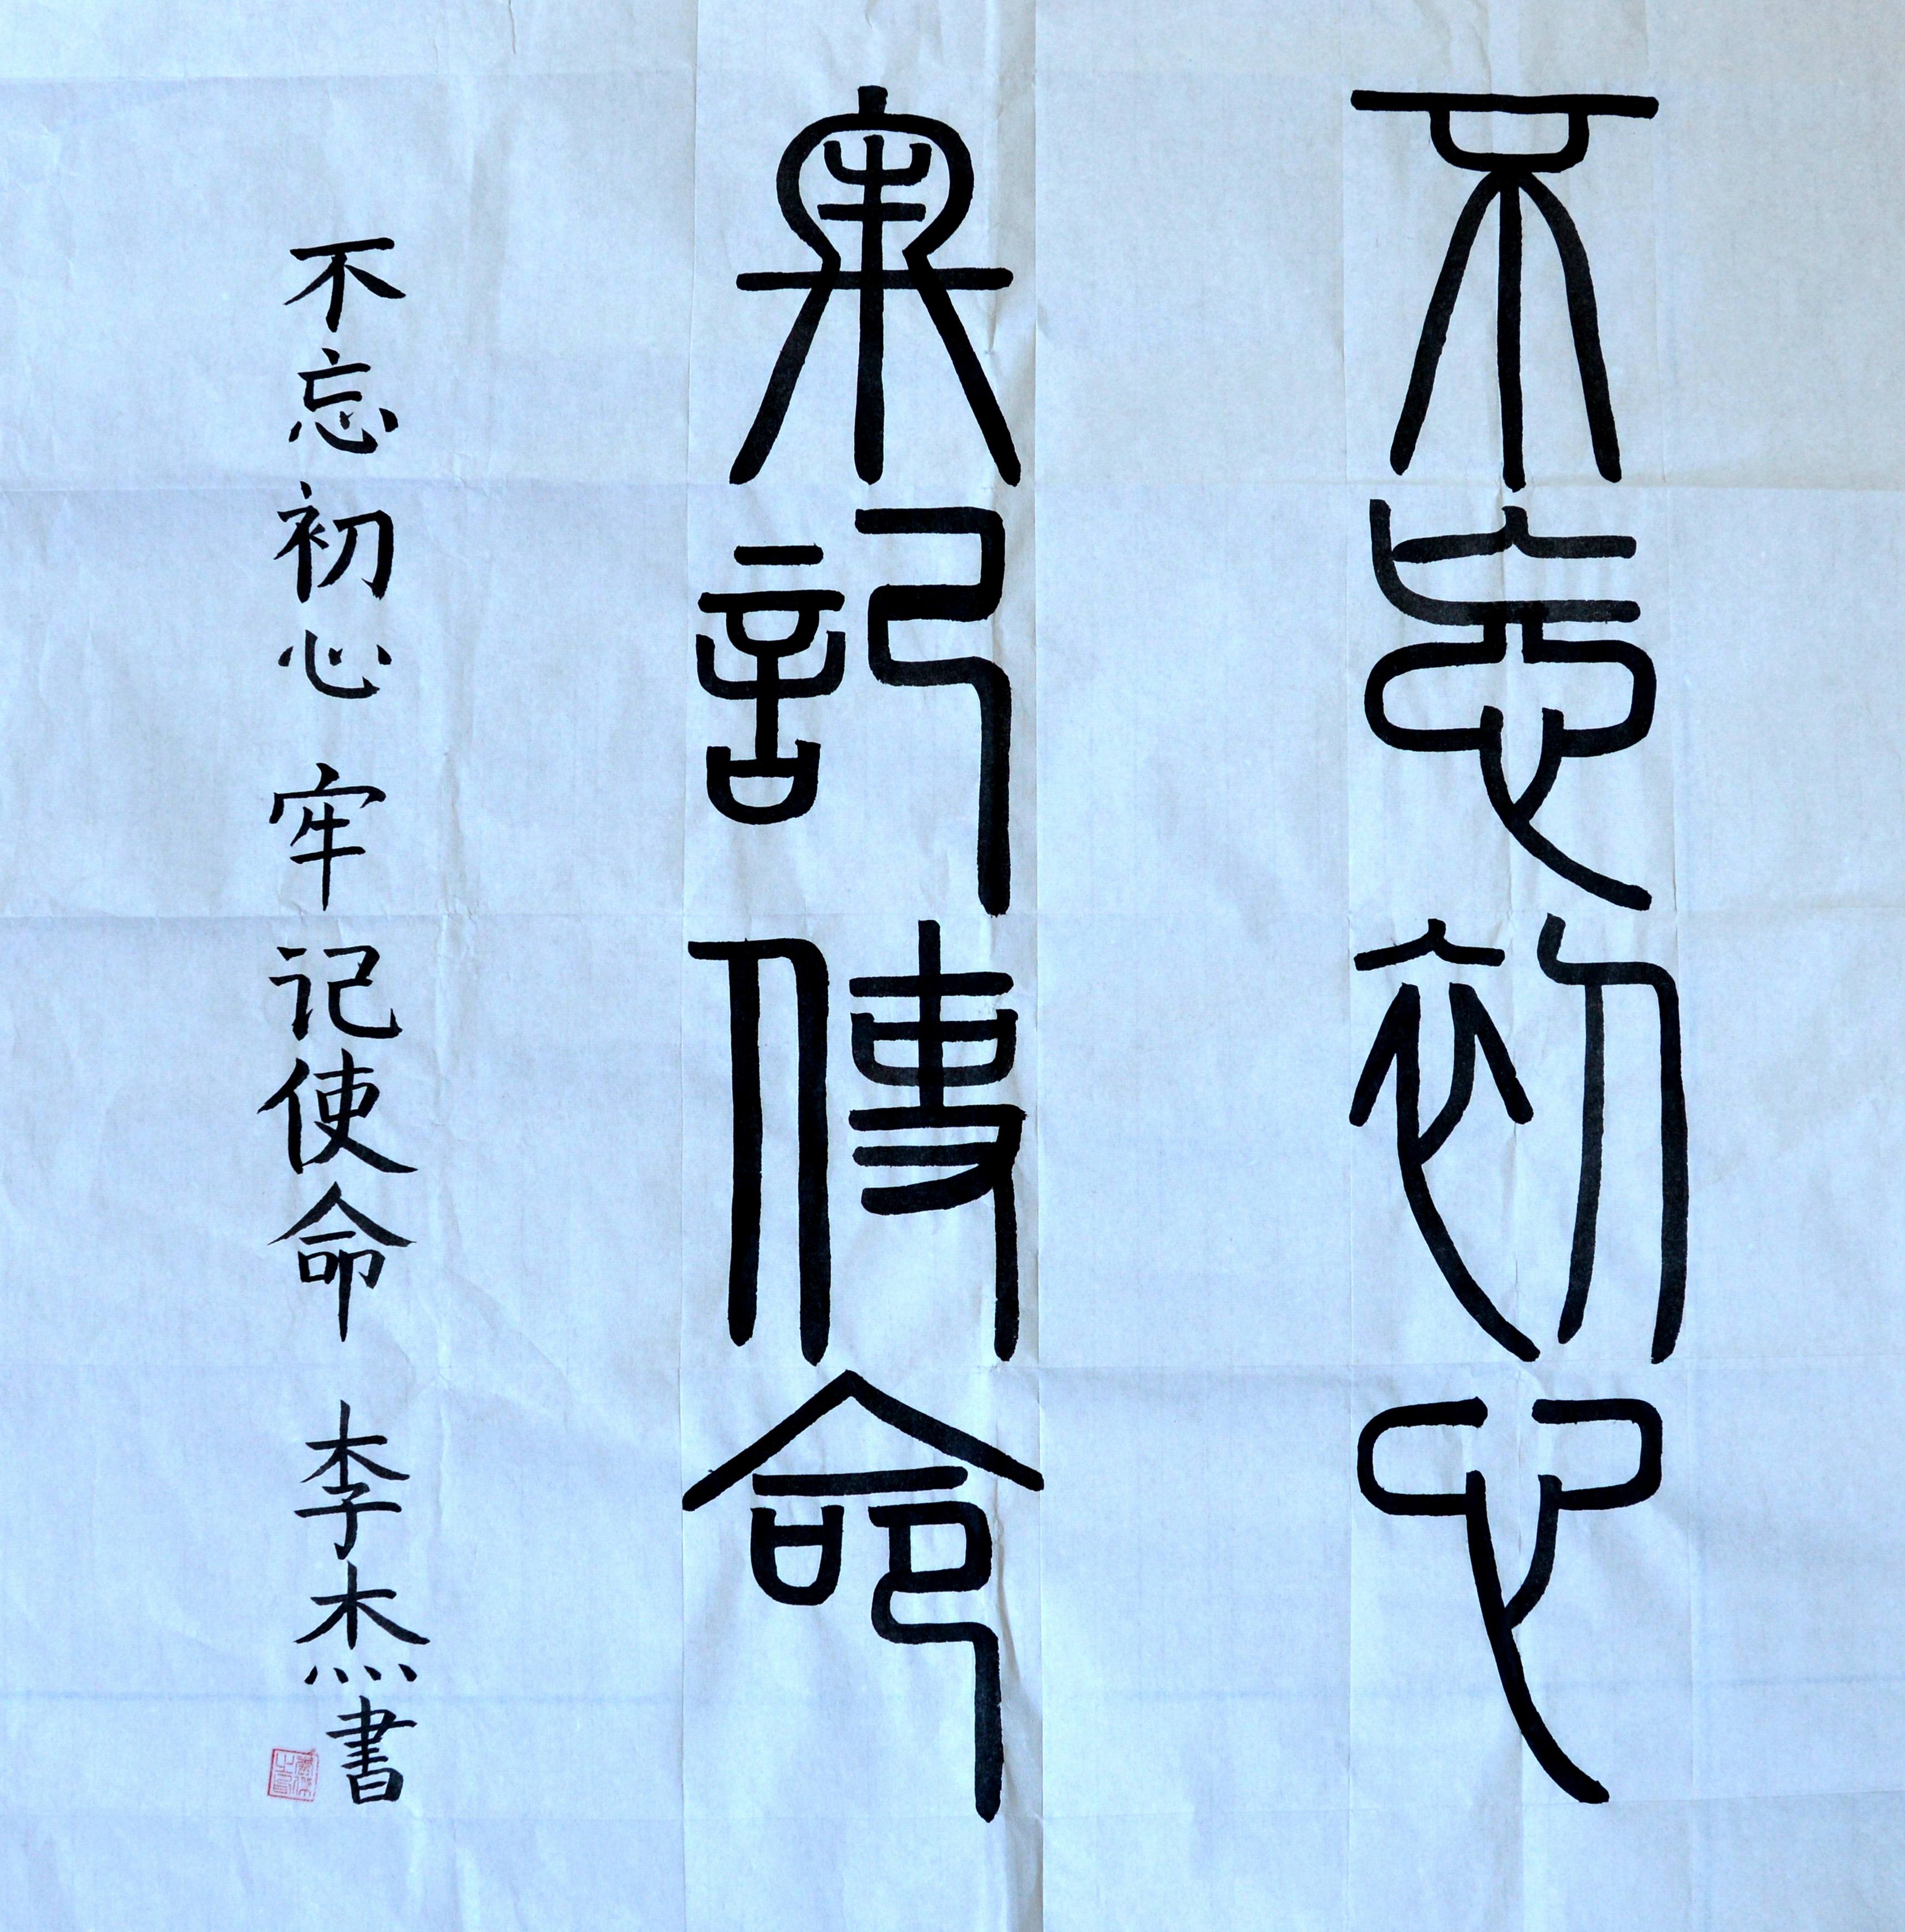 不忘初心
牢記使命
不忘初心 牢记使命 李杰書